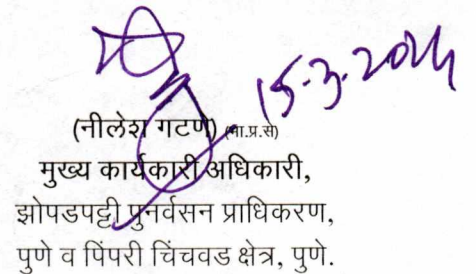 15.3.2024
(नीलेश गटणे) (भा.प्र.से)
मुख्य कार्यकारी अधिकारी,
झोपडपट्टी पुनर्वसन प्राधिकरण,
पुणे व पिंपरी चिंचवड क्षेत्र, पुणे.